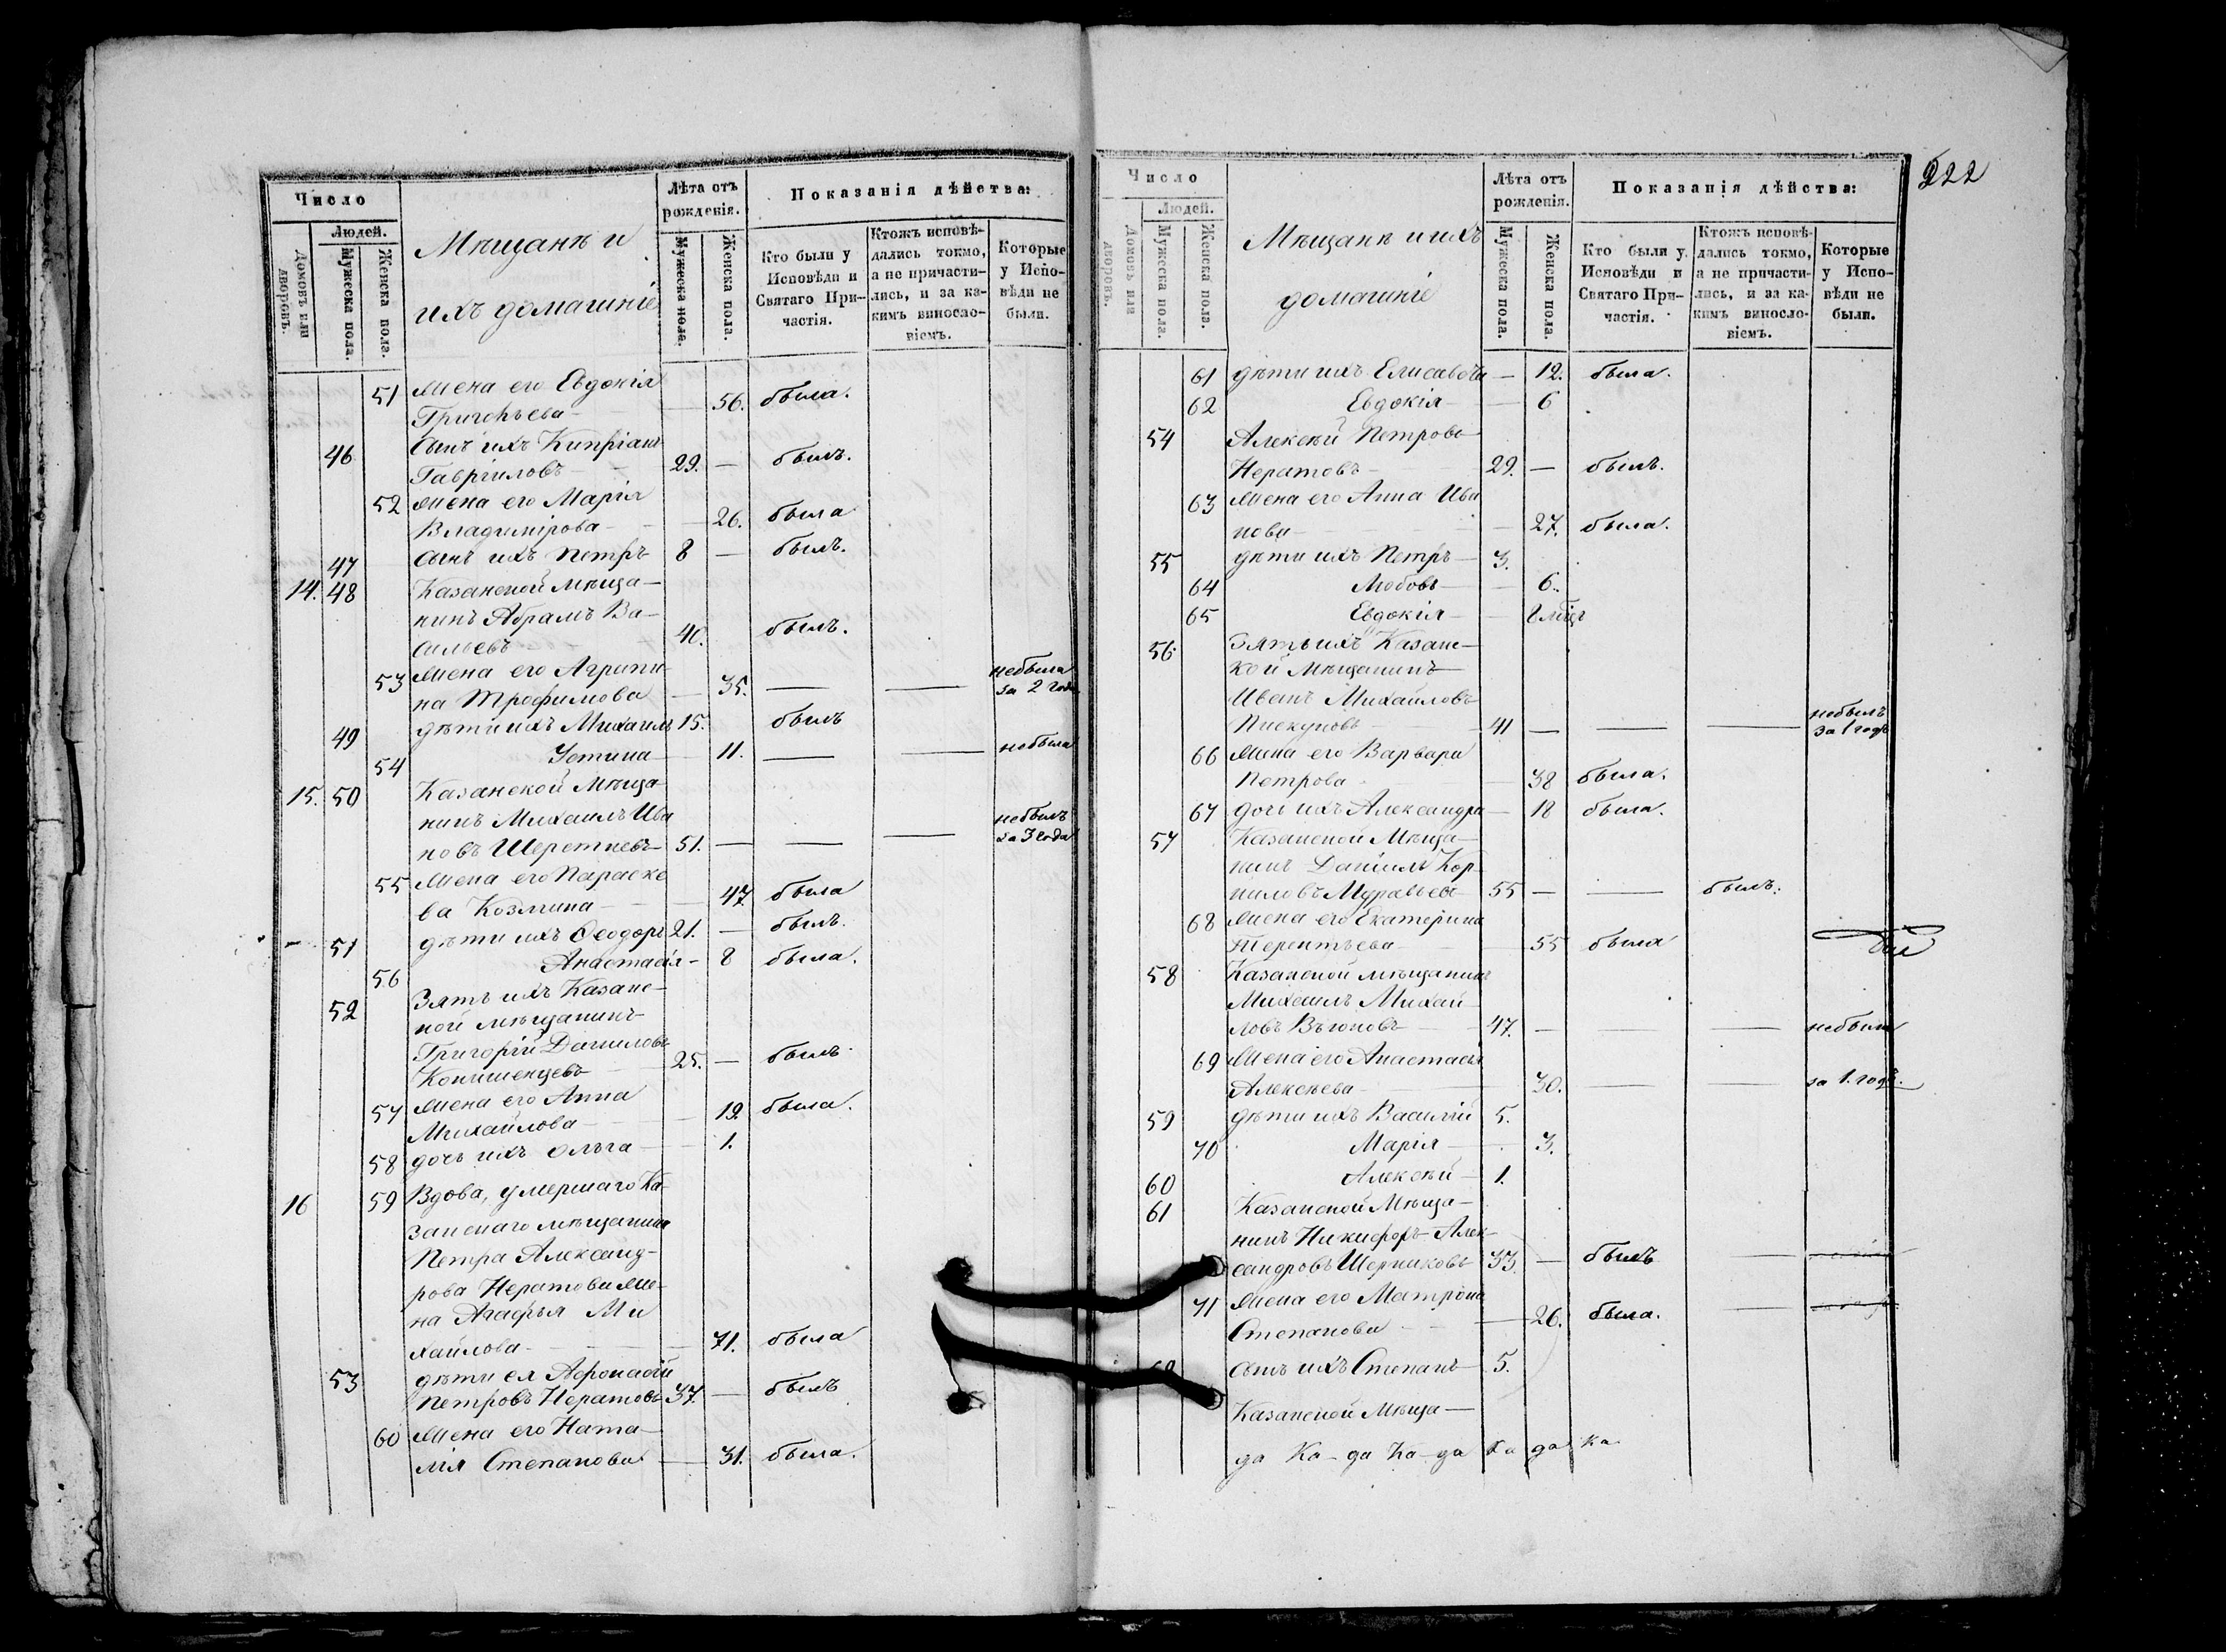 Число
Людей.
Домовъ или дворовъ.
Мужеска пола.
Женска пола.
Мѣщанъ и
ихъ домашніе
Лѣта отъ рожденія.
Мужеска пола.
Женска пола.
Показанія дѣйства:
Кто были у Исповѣди и Святаго При-частія.
Ктожъ исповѣ-дались токмо, а не причасти-лись, и за ка-кимъ винословіемъ.
Которые у Испо-вѣди не были.
51 жена его Евдокія
Григорьева — 56. была.
46 Сынъ ихъ Кипріанъ
Гавріиловъ 29. — былъ.
52 жена его Марія
Владимірова — 26. была
47 сынъ ихъ Петръ 8 — былъ.
14. 48 Казанской мѣща-
нинъ Абрамъ Ва-
сильевъ 40. былъ.
53 жена его Агрипи-
на Трофимова — 35. — — небыла за 2 года
49 дѣти ихъ Михаилъ 15. былъ
54 Устина — 11. — — небыла
15. 50 Казанской Мѣща-
нинъ Михаилъ Ива
новъ Шерстневъ 51. — — — небылъ за 3 года
55 жена его Параске
ва Козмина — 47 была
51 дѣти ихъ Ѳеодоръ 21. — былъ.
56 Анастасія — 8 была.
52 Зять ихъ Казанс-
кой мѣщанинъ
Григорій Даниловъ
25. — былъ
57 жена его Анна
Михайлова — 19. была.
58 дочь ихъ Ольга — 1.
16 59 Вдова, умершаго Ка-
занскаго мѣщанина
Петра Александ-
рова Нератова же-
на Агафья Ми
хайлова — 71. была
53 дѣти ея Афонасій
Петровъ Нератовъ 37. — былъ
60 жена его Ната-
лія Степанова — 31. была.
222
Число
Людей.
Домовъ или дворовъ.
Мужеска пола.
Женска пола.
Мѣщанъ и ихъ
домашніе
Лѣта отъ рожденія.
Мужеска пола.
Женска пола.
Показанія дѣйства:
Кто были у Исповѣди и Святаго При-частія.
Ктожъ исповѣ-дались токмо, а не причасти-лись, и за ка-кимъ винословіемъ.
Которые у Испо-вѣди не были.
61 дѣти ихъ Елисавета — 12. была.
62 Евдокія — 6
54 Алексѣй Петровъ
Нератовъ 29. — былъ.
63 жена его Анна Ива
нова — 27. была.
55 дѣти ихъ Петръ 3.
64 Любовь — 6.
65 Евдокія — 8 мѣц
56 Зять ихъ Казанс-
кой мѣщанинъ
Иванъ Михайловъ
Пискуновъ 41 — — — небылъ за 1 годъ
66 жена его Варвара
Петрова — 38 была.
67 дочь ихъ Александра — 18 была.
57 Казанской Мѣща-
нинъ Даніилъ Кор-
ниловъ Муравьевъ 55 — — былъ.
68 жена его Екатерина
Терентьева — 55 была
58 Казанской мѣщанинъ
Михаилъ Михай
ловъ Вьюновъ 47. — — — небыли
69 жена его Анастасія
Алексѣева — 30. — за 1. годъ.
59 дѣти ихъ Василій 5.
70 Марія — 3.
60 Алексѣй 1.
61 Казанской Мѣща-
нинъ Никифоръ Алек-
сандровъ 33. — былъ —
71 жена его Матрона
Степанова — 26. была. —
сынъ ихъ Степанъ 5.
Казанской Мѣща-
да Ка-да Ка-да Ка да ка